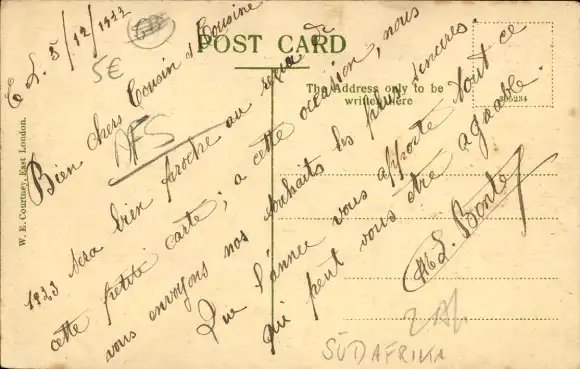 E. L. 5/12/1922
5€
POST CARD
The Address only to be
written here
95234
W. E. Courtney, East London.
AFS
Bien chers Cousin et Cousine
1923 sera bien proche au reçu de
cette petite carte; a cette occasion, nous
vous envoyons nos souhaits les plus sincères.
Que l'année vous apporte tout ce
qui peut vous être agréable.
SÜDAFRIKA